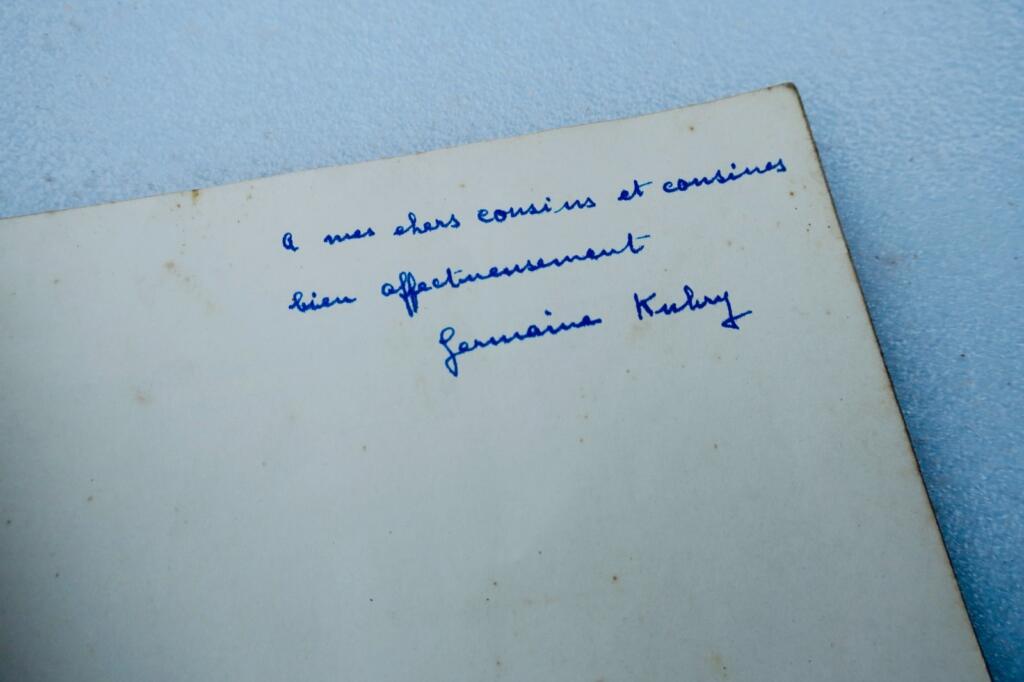 A mes chers cousins et cousines
bien affectueusement
Germaine Kubry